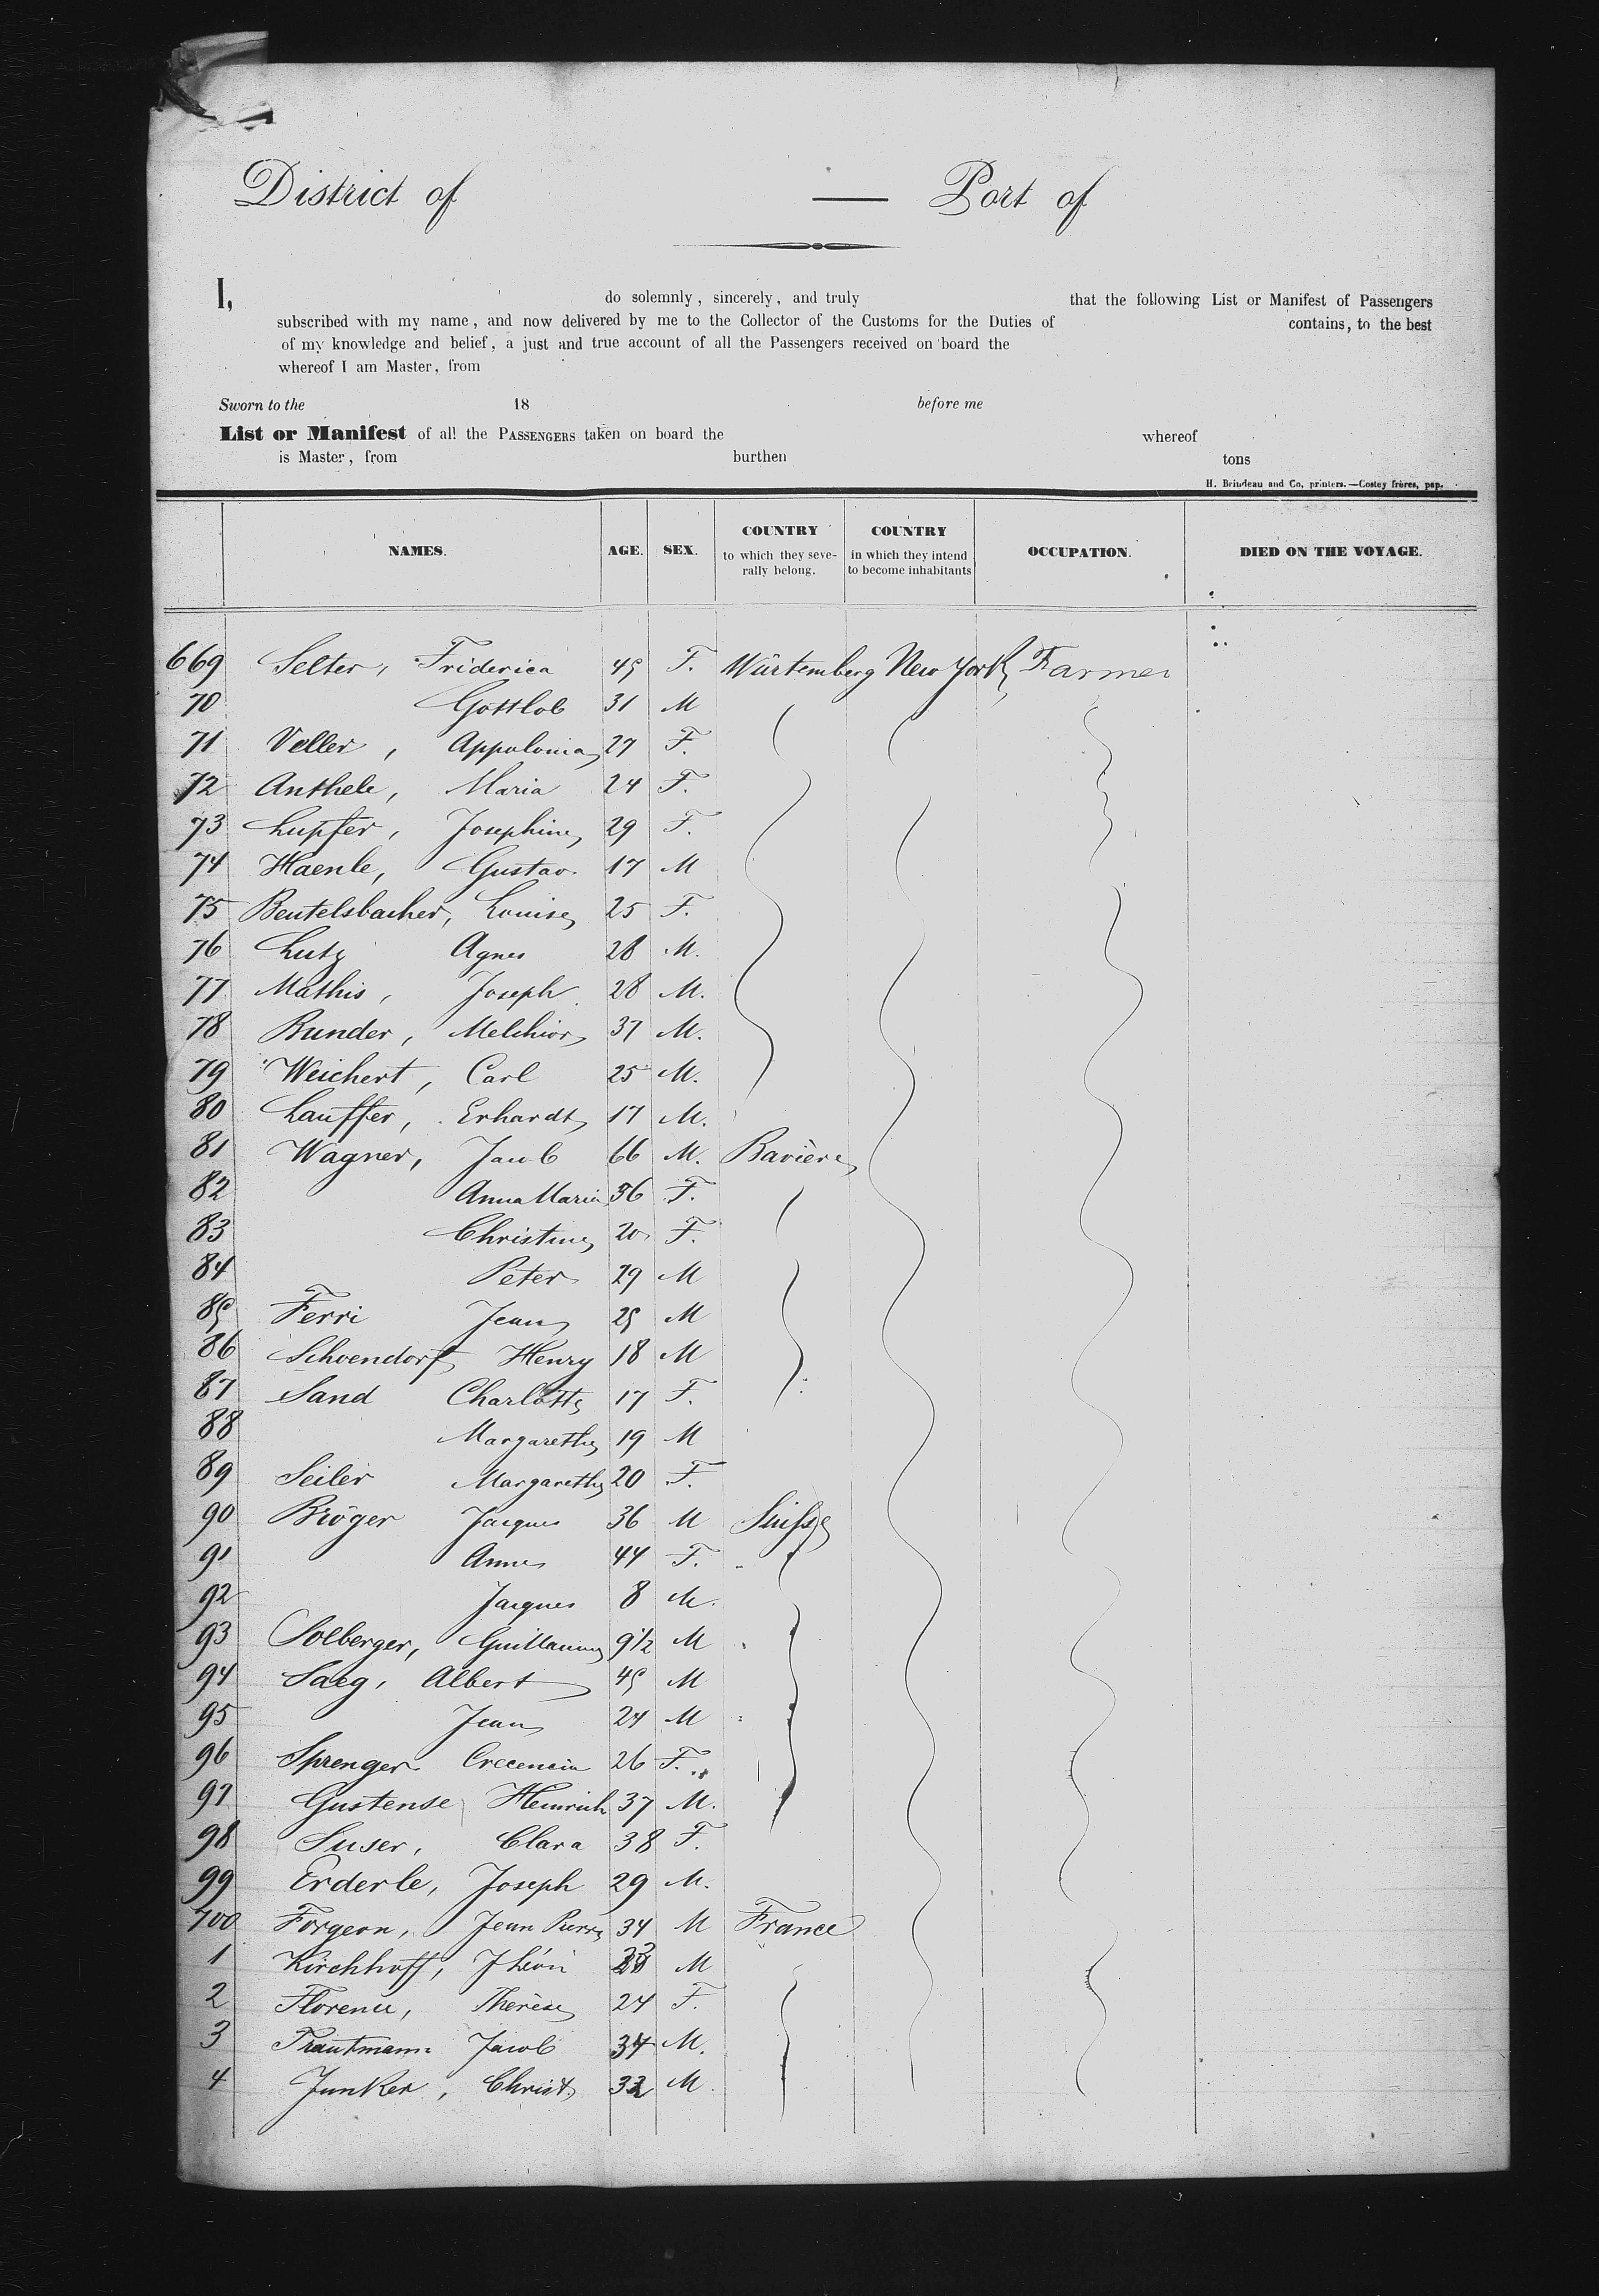 District of — Port of
I, do solemnly, sincerely, and truly that the following List or Manifest of Passengers
subscribed with my name, and now delivered by me to the Collector of the Customs for the Duties of contains, to the best
of my knowledge and belief, a just and true account of all the Passengers received on board the
whereof I am Master, from
Sworn to the 18 before me
List or Manifest of all the PASSENGERS taken on board the whereof
is Master, from burthen tons
H. Brindeau and Co, printers.—Costey frères, pap.
NAMES. AGE. SEX. COUNTRY to which they seve- rally belong. COUNTRY in which they intend to become inhabitants OCCUPATION. DIED ON THE VOYAGE.
669 Selter, Friderica 45 F. Würtemberg New York Farmer
70 Gottlob 31 M
71 Veller, Appolonia 27 F.
72 Anthele, Maria 24 F.
73 Lupfer, Josephine 29 F.
74 Haenle, Gustav. 17 M
75 Beutelsbacher, Louise 25 F.
76 Lutz Agnes 28 M.
77 Mathis, Joseph 28 M.
78 Bunder, Melchior 37 M.
79 Weichert, Carl 25 M.
80 Lauffer, Erhardt 17 M.
81 Wagner, Jacob 66 M. Bavière
82 Anna Maria 56 F.
83 Christine 20 F.
84 Peter 29 M
85 Ferri Jean 25 M
86 Schoendorf Henry 18 M
87 Sand Charlotte 17 F.
88 Margarethe 19 M
89 Seiler Margarethe 20 F.
90 Bröger Jacques 36 M Suisse
91 Anne 44 F.
92 Jacques 8 M.
93 Solberger, Guillaume 9 1/2 M
94 Saeg, Albert 45 M
95 Jean 24 M
96 Sprenger Crecencia 26 F.
97 Gustense Heinrich 37 M.
98 Suser, Clara 38 F.
99 Erderle, Joseph 29 M.
700 Forgeon, Jean Pierre 34 M France
1 Kirchhoff, J Léon M
2 Florence, Therèse 24 F.
3 Trautmann Jacob 34 M.
4 Junker, Christ. 32 M.